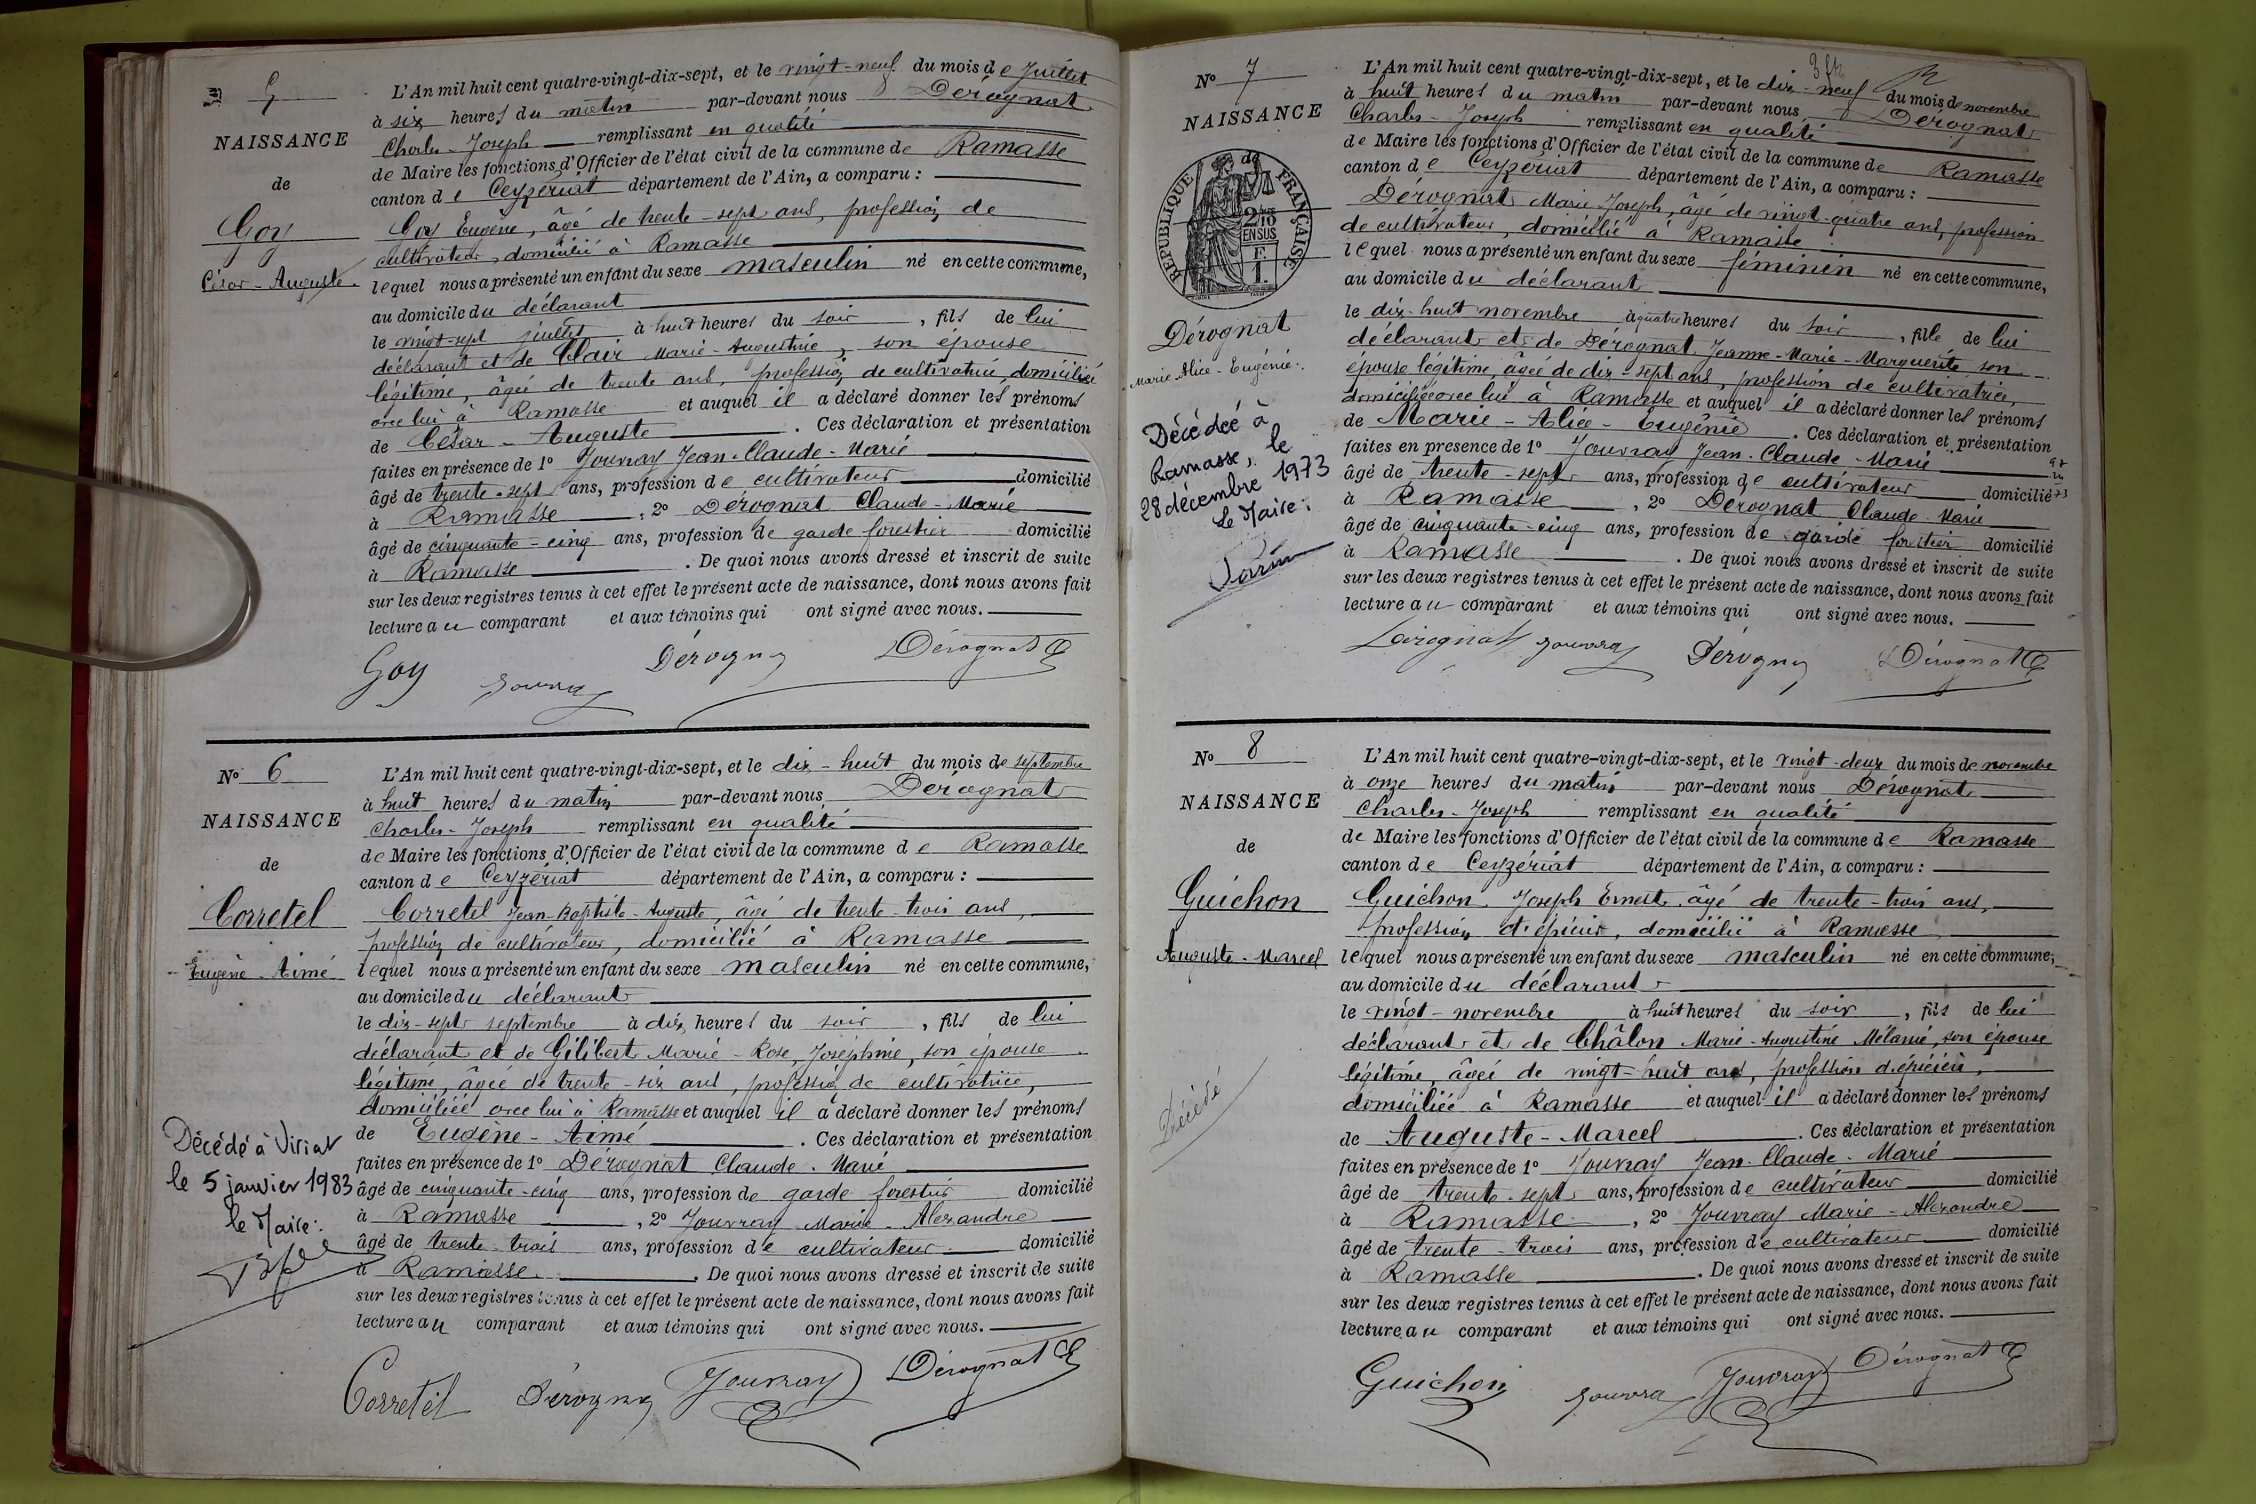 5
NAISSANCE
de
Goy
César-Auguste
L'An mil huit cent quatre-vingt-dix-sept, et le vingt-neuf du mois de Juillet
à six heures du matin par-devant nous Dérognat
Charles-Joseph remplissant en qualité
de Maire les fonctions d'Officier de l'état civil de la commune de Ramasse
canton de Ceyzériat département de l'Ain, a comparu :
Goy Eugène, âgé de trente-sept ans, profession de
cultivateur, domicilié à Ramasse
lequel nous a présenté un enfant du sexe masculin né en cette commune,
au domicile du déclarant
le vingt-sept juillet à huit heures du soir, fils de lui
déclarant et de Clair Marie-Augustine, son épouse
légitime, âgée de trente ans, profession de cultivatrice, domiciliée
avec lui à Ramasse et auquel il a déclaré donner les prénoms
de César-Auguste. Ces déclaration et présentation
faites en présence de 1º Jouvray Jean-Claude-Marie
âgé de trente-sept ans, profession de cultivateur domicilié
à Ramasse, 2º Dérognat Claude-Marie
âgé de cinquante-cinq ans, profession de garde forestier domicilié
à Ramasse. De quoi nous avons dressé et inscrit de suite
sur les deux registres tenus à cet effet le présent acte de naissance, dont nous avons fait
lecture au comparant et aux témoins qui ont signé avec nous.
Goy Jouvray Dérogny Dérognat
Nº 6
NAISSANCE
de
Corretel
Eugène-Aimé
Décédé à Viriat
le 5 janvier 1983
le Maire:
L'An mil huit cent quatre-vingt-dix-sept, et le dix-huit du mois de septembre
à huit heures du matin par-devant nous Dérognat
Charles-Joseph remplissant en qualité
de Maire les fonctions d'Officier de l'état civil de la commune de Ramasse
canton de Ceyzériat département de l'Ain, a comparu :
Corretel Jean-Baptiste-Auguste, âgé de trente-trois ans,
profession de cultivateur, domicilié à Ramasse
lequel nous a présenté un enfant du sexe masculin né en cette commune,
au domicile du déclarant
le dix-sept septembre à dix heures du soir, fils de lui
déclarant et de Gilibert Marie-Rose, Joséphine, son épouse
légitime, âgée de trente-six ans, profession de cultivatrice,
domiciliée avec lui à Ramasse et auquel il a déclaré donner les prénoms
de Eugène-Aimé. Ces déclaration et présentation
faites en présence de 1º Dérognat Claude-Marie
âgé de cinquante-cinq ans, profession de garde forestier domicilié
à Ramasse, 2º Jouvray Marie-Alexandre
âgé de trente-trois ans, profession de cultivateur domicilié
à Ramasse. De quoi nous avons dressé et inscrit de suite
sur les deux registres tenus à cet effet le présent acte de naissance, dont nous avons fait
lecture au comparant et aux témoins qui ont signé avec nous.
Corretel Dérogny Jouvray Dérognat
Nº 7
NAISSANCE
RÉPUBLIQUE FRANÇAISE
2/10 EN SUS
Dérognat
Marie Alice-Eugénie.
Décédée à
Ramasse, le
28 décembre 1973
Le Maire:
L'An mil huit cent quatre-vingt-dix-sept, et le dix-neuf du mois de novembre
à huit heures du matin par-devant nous Dérognat
Charles-Joseph remplissant en qualité
de Maire les fonctions d'Officier de l'état civil de la commune de Ramasse
canton de Ceyzériat département de l'Ain, a comparu :
Dérognat Marie Joseph, âgé de vingt-quatre ans, profession
de cultivateur, domicilié à Ramasse
lequel nous a présenté un enfant du sexe féminin né en cette commune,
au domicile du déclarant
le dix-huit novembre à quatre heures du soir, fille de lui
déclarant et de Dérognat Jeanne-Marie-Marguerite, son
épouse légitime, âgée de dix-sept ans, profession de cultivatrice,
domiciliée avec lui à Ramasse et auquel il a déclaré donner les prénoms
de Marie-Alice-Eugénie. Ces déclaration et présentation
faites en présence de 1º Jouvray Jean-Claude-Marie
âgé de trente-sept ans, profession de cultivateur domicilié
à Ramasse, 2º Dérognat Claude-Marie
âgé de cinquante-cinq ans, profession de garde forestier domicilié
à Ramasse. De quoi nous avons dressé et inscrit de suite
sur les deux registres tenus à cet effet le présent acte de naissance, dont nous avons fait
lecture au comparant et aux témoins qui ont signé avec nous.
Dérognat Jouvray Dérogny Dérognat
Nº 8
NAISSANCE
de
Guichon
Auguste-Marcel
Décédé
L'An mil huit cent quatre-vingt-dix-sept, et le vingt-deux du mois de novembre
à onze heures du matin par-devant nous Dérognat
Charles-Joseph remplissant en qualité
de Maire les fonctions d'Officier de l'état civil de la commune de Ramasse
canton de Ceyzériat département de l'Ain, a comparu :
Guichon Joseph Ernest, âgé de trente-trois ans,
profession d'épicier, domicilié à Ramasse
lequel nous a présenté un enfant du sexe masculin né en cette commune,
au domicile du déclarant
le vingt-novembre à huit heures du soir, fils de lui
déclarant et de Châlon Marie-Augustine Mélanie, son épouse
légitime, âgée de vingt-huit ans, profession d'épicière,
domiciliée à Ramasse et auquel il a déclaré donner les prénoms
de Auguste-Marcel. Ces déclaration et présentation
faites en présence de 1º Jouvray Jean-Claude-Marie
âgé de trente-sept ans, profession de cultivateur domicilié
à Ramasse, 2º Jouvray Marie-Alexandre
âgé de trente-trois ans, profession de cultivateur domicilié
à Ramasse. De quoi nous avons dressé et inscrit de suite
sur les deux registres tenus à cet effet le présent acte de naissance, dont nous avons fait
lecture au comparant et aux témoins qui ont signé avec nous.
Guichon Jouvray Jouvray Dérognat